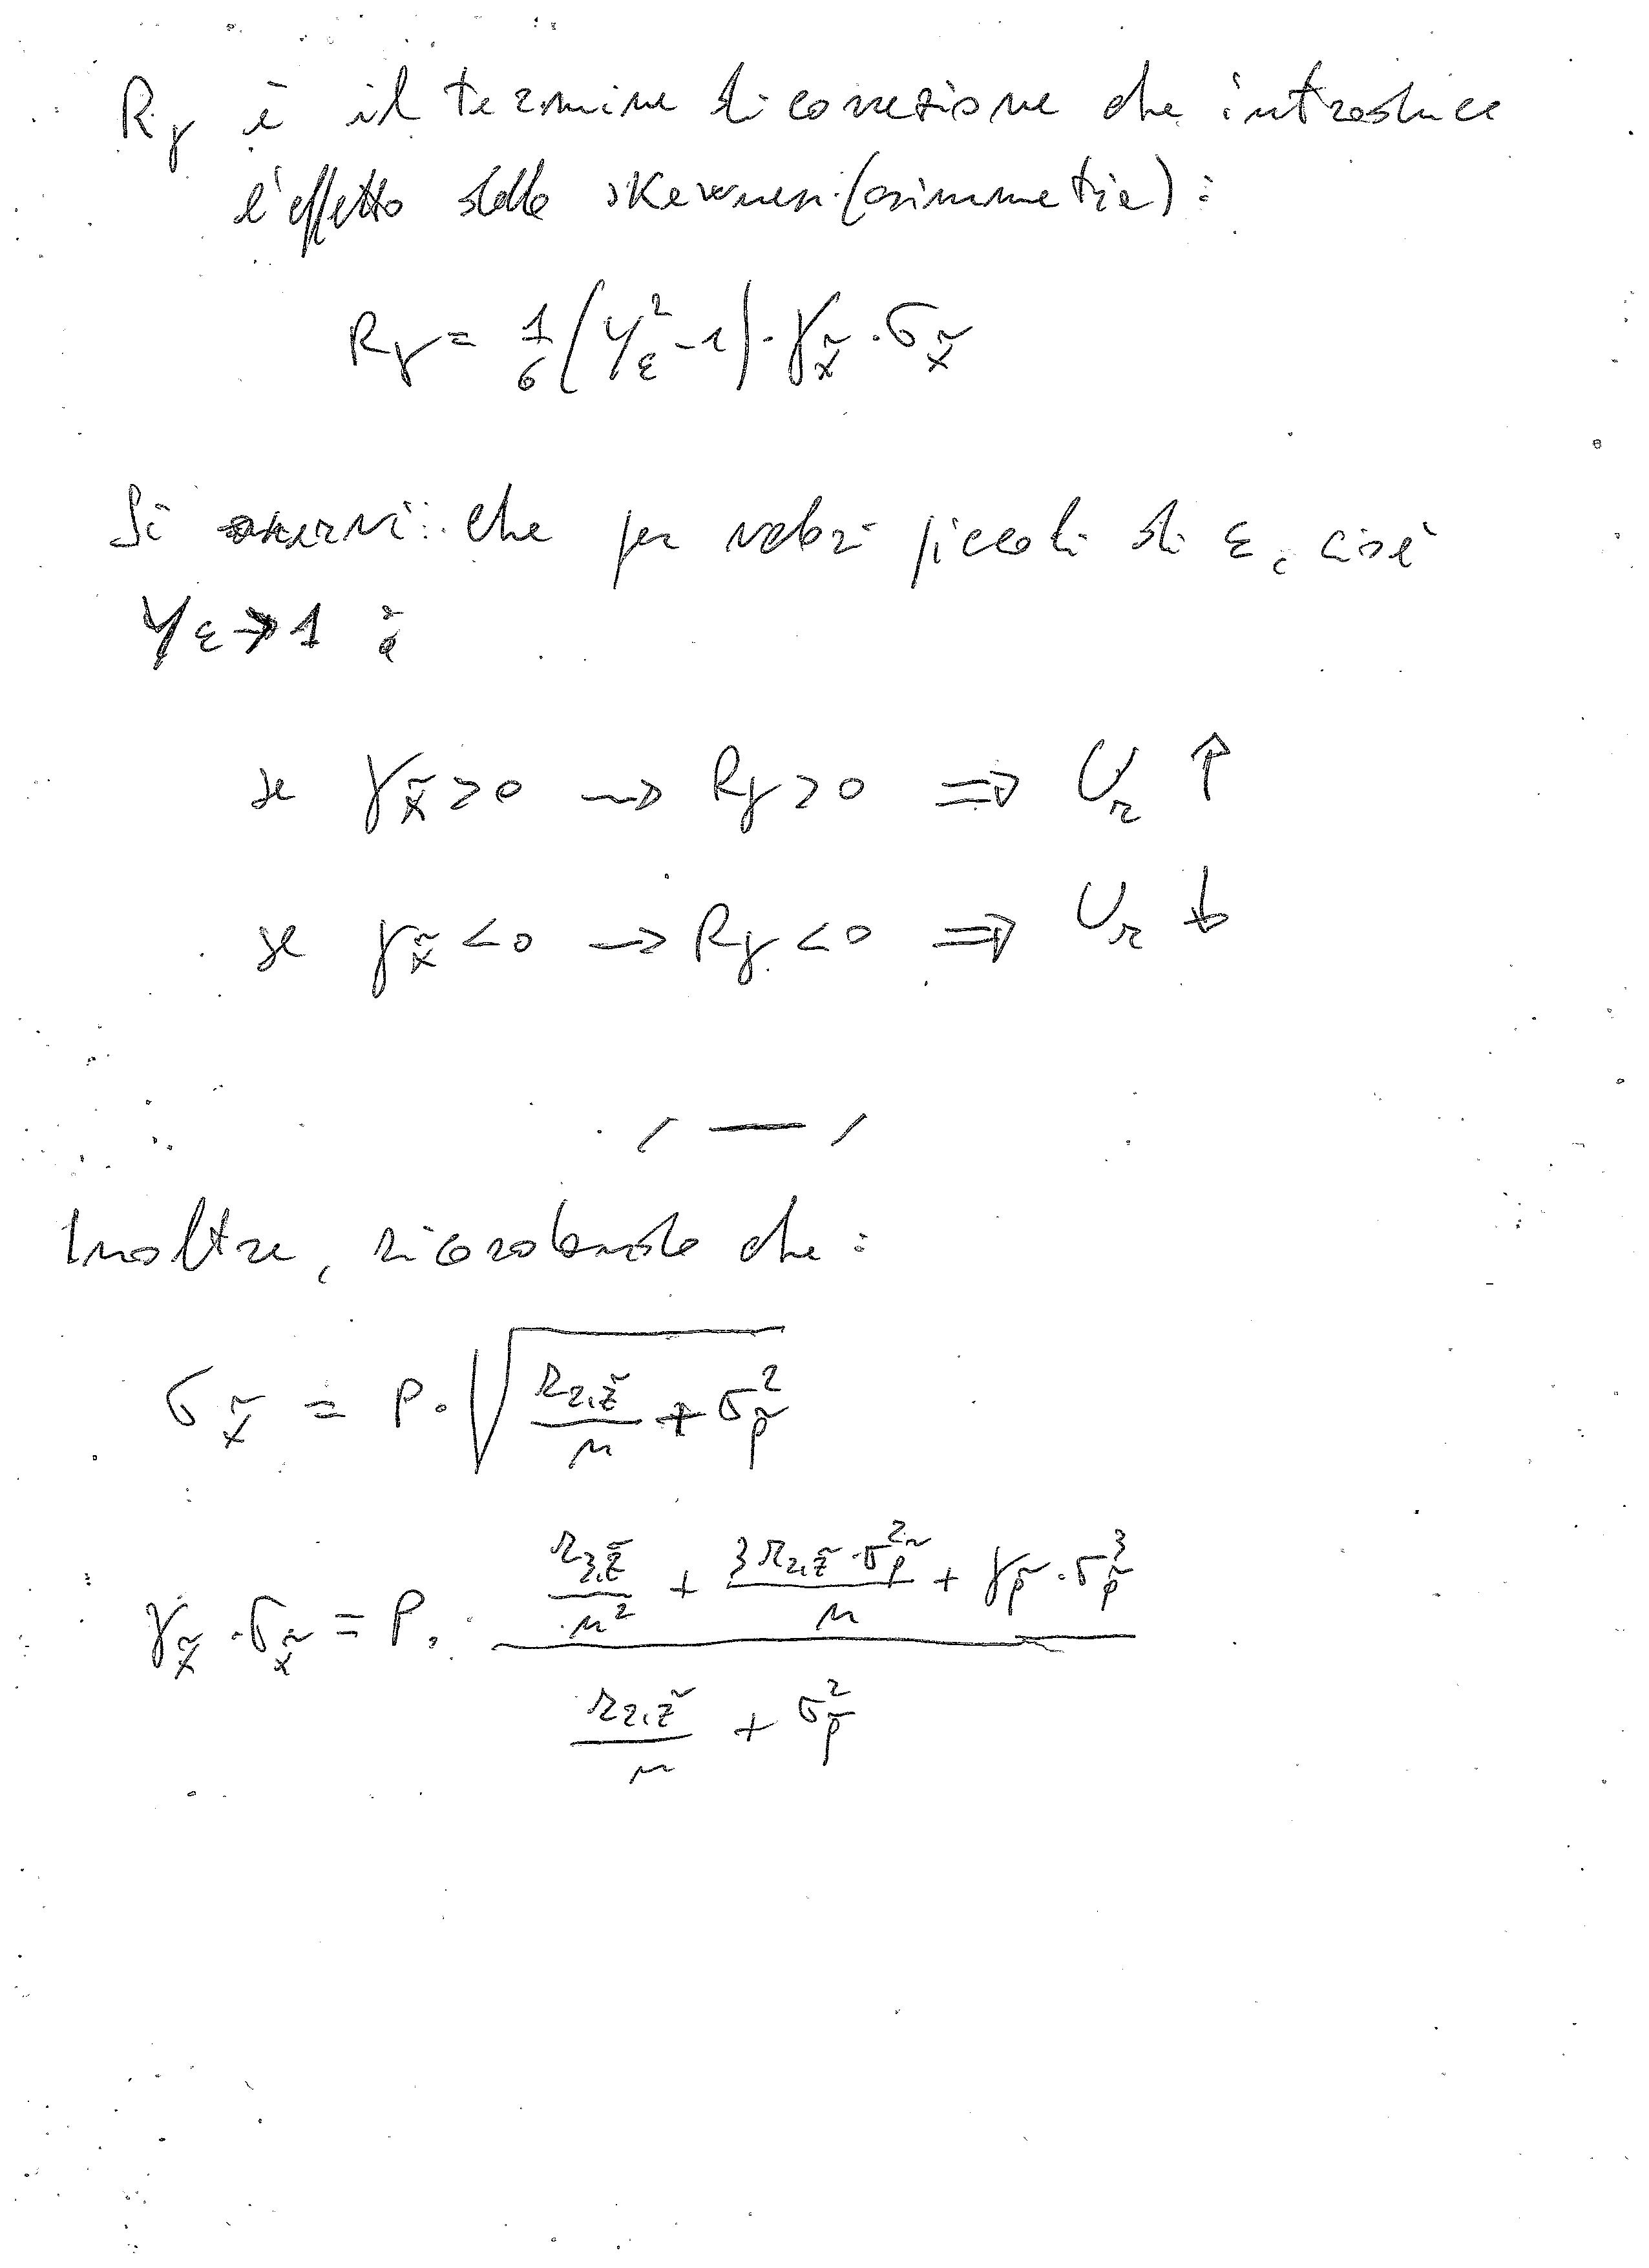 Rγ è il termine di correzione che introduce
l'effetto della skewness (asimmetria):
Rγ = 1/6 (y²_ε - 1) · γ_x̃ · σ_x̃
Si osservi che per valori piccoli di ε, cioè
y_ε → 1 :
se γ_x̃ > 0 → Rγ > 0 ⇒ U_r ↑
se γ_x̃ < 0 → Rγ < 0 ⇒ U_r ↓
Inoltre, ricordando che:
σ_x̃ = P · √(r_2,z̃ / n + σ²_p̃)
γ_x̃ · σ_x̃ = P · (r_3,z̃ / n² + 3 r_2,z̃ · σ²_p̃ / n + γ_p̃ · σ³_p̃) / (r_2,z̃ / n + σ²_p̃)